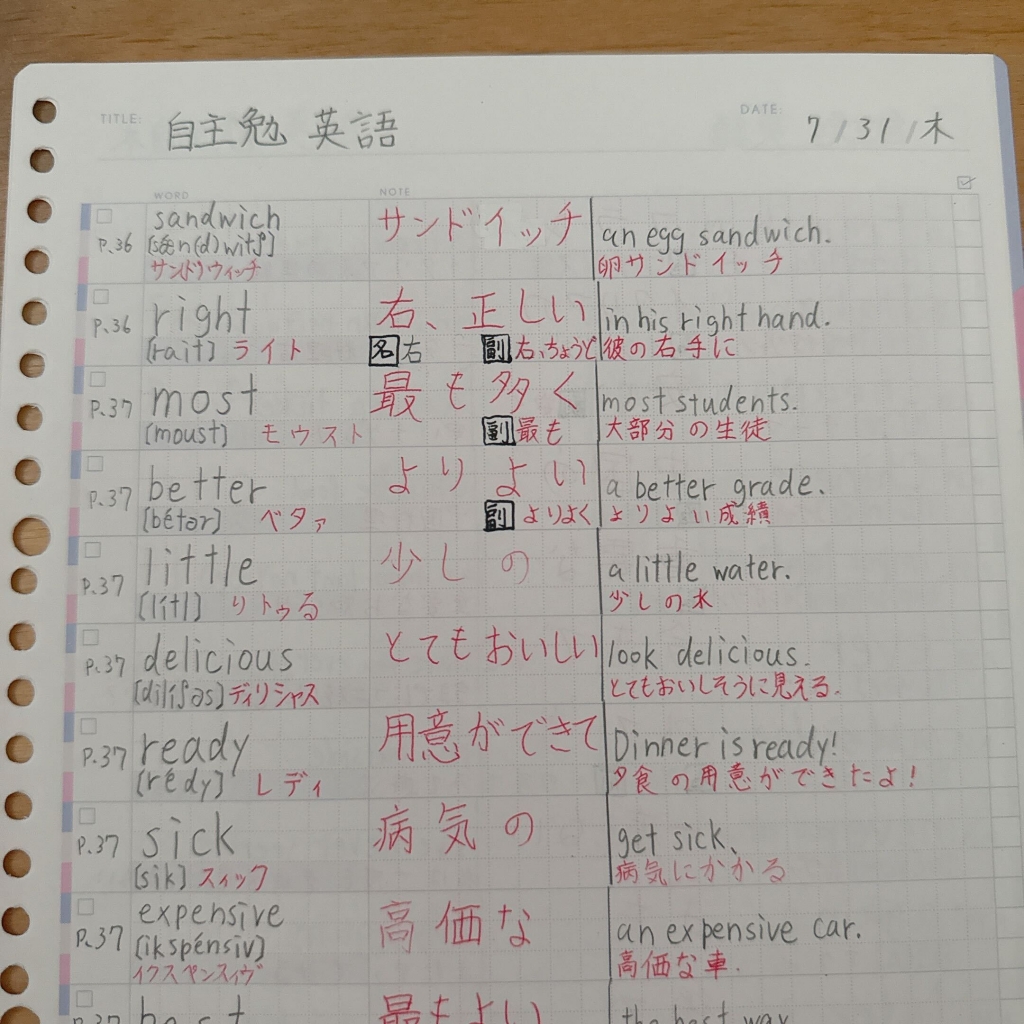 TITLE: 自主勉 英語
DATE: 7/31/木
WORD NOTE
P.36 sandwich サンドイッチ an egg sandwich.
[sǽn(d)witʃ] 卵サンドイッチ
サンド(ド)ウィッチ
P.36 right 右、正しい in his right hand.
[rait] ライト 名右 副右、ちょうど 彼の右手に
P.37 most 最も多く most students.
[moust] モウスト 副最も 大部分の生徒
P.37 better よりよい a better grade.
[bétər] ベタァ 副よりよく よりよい成績
P.37 little 少しの a little water.
[lítl] リトゥる 少しの水
P.37 delicious とてもおいしい look delicious.
[dilíʃəs] ディリシャス とてもおいしそうに見える.
P.37 ready 用意ができて Dinner is ready!
[rédy] レディ 夕食の用意ができたよ!
P.37 sick 病気の get sick、
[sik] スィック 病気にかかる
P.37 expensive 高価な an expensive car.
[ikspénsiv] 高価な車.
イクスペンスィヴ
P.37 best 最もよい the best way